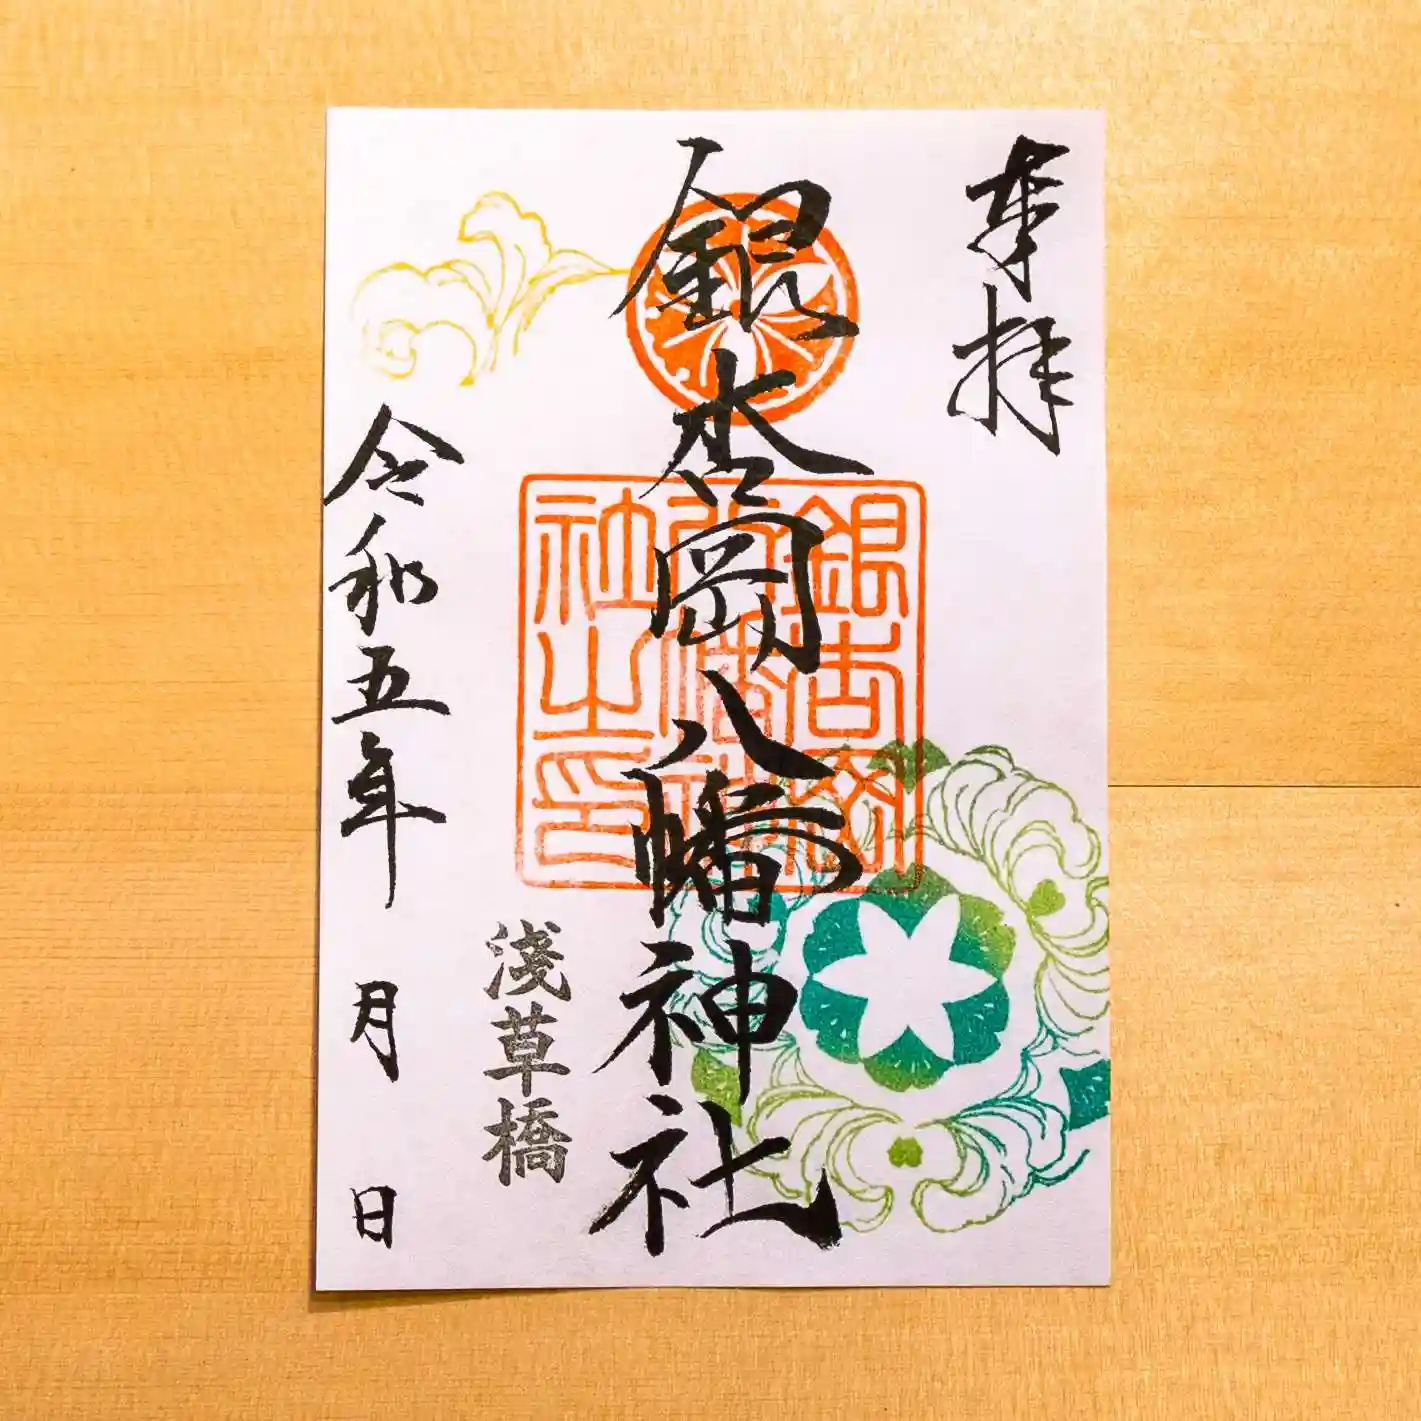 奉拝
銀杏岡八幡神社
銀杏岡
八幡神
社之印
淺草橋
令和五年 月 日